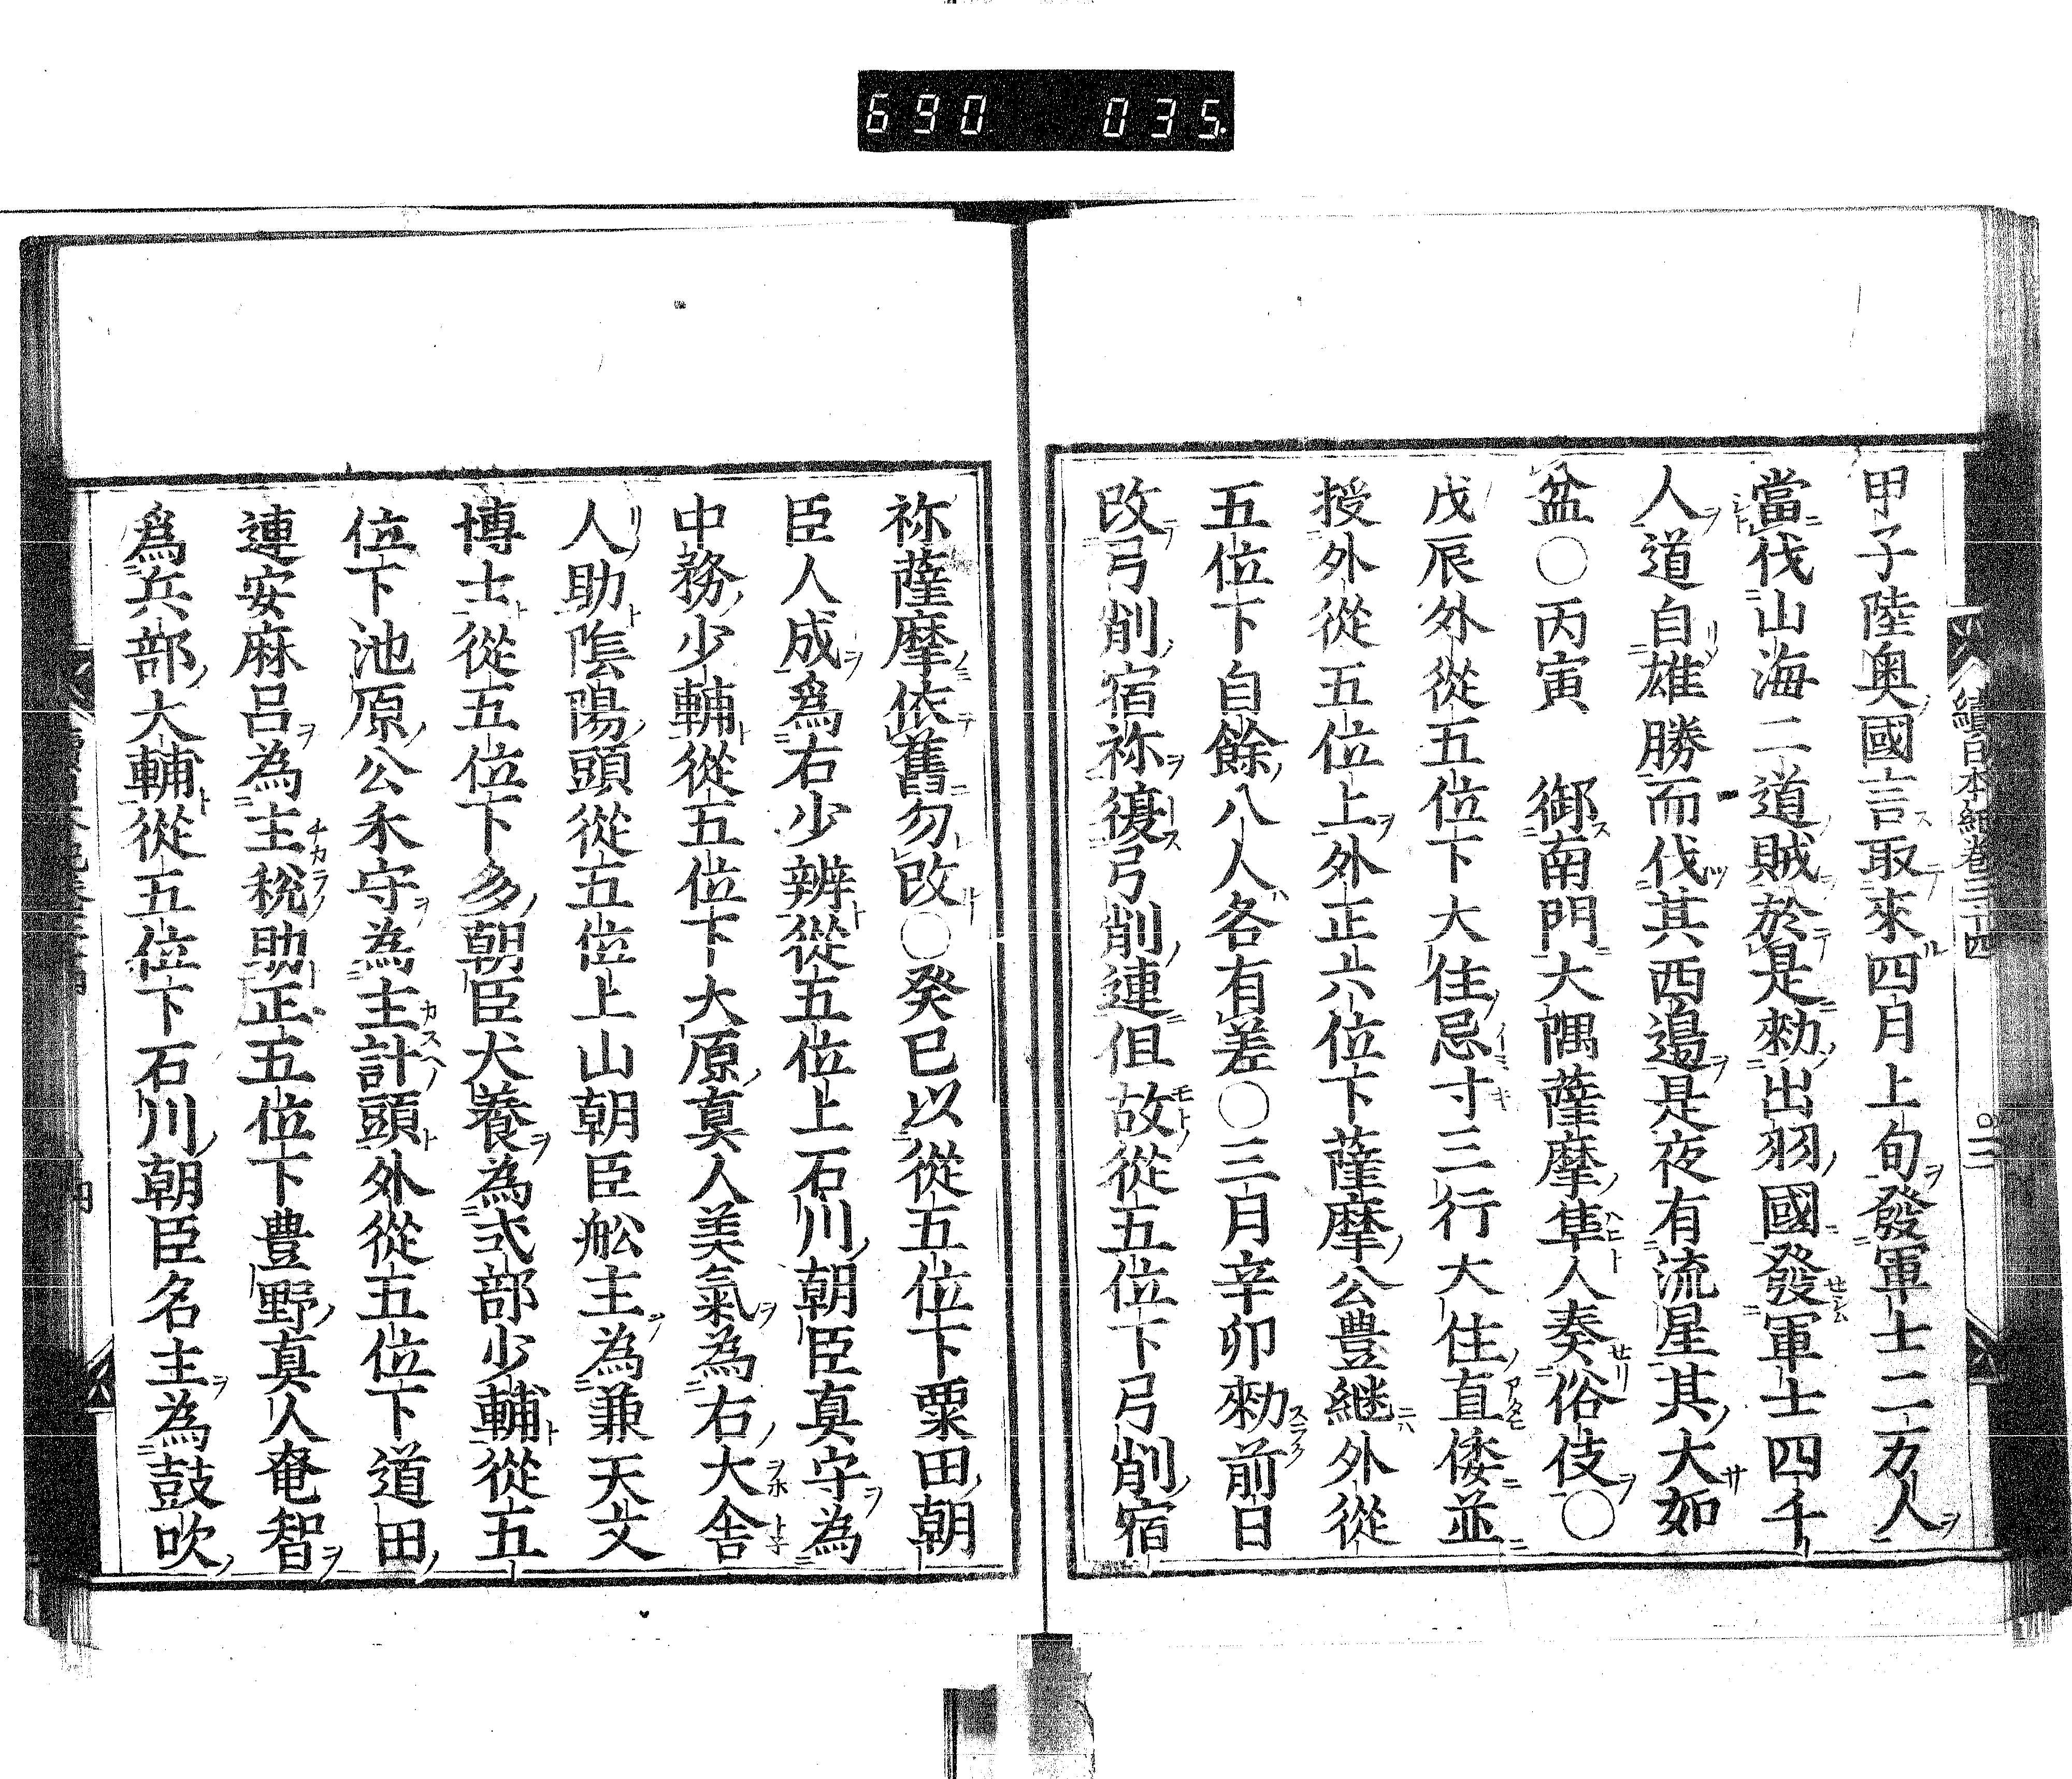 690 035
續日本紀卷三十四
〇二
甲子陸奥國言取來四月上旬發軍士二万人
當伐山海二道賊於是勑出羽國發軍士四千
人道自雄勝而伐其西邊是夜有流星其大如
盆○丙寅 御南門大隅薩摩隼人奏俗伎○
戊辰外從五位下大住忌寸三行大住直倭並
授外從五位上外正六位下薩摩公豊継外從
五位下自餘八人各有差○三月辛卯勑前日
改弓削宿祢復弓削連但故從五位下弓削宿
祢薩摩依舊勿改○癸巳以從五位下粟田朝
臣人成爲右少辨從五位上石川朝臣真守為
中務少輔從五位下大原真人美氣為右大舎
人助陰陽頭從五位上山朝臣舩主為兼天文
博士從五位下多朝臣犬養為式部少輔從五
位下池原公禾守為主計頭外從五位下道田
連安麻呂為主税助正五位下豊野真人奄智
爲兵部大輔從五位下石川朝臣名主為鼓吹